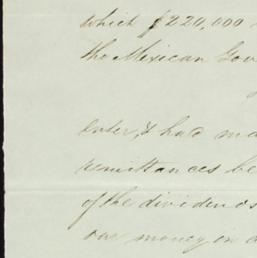 which $220,000
the Mexican Gov
enter, & had ma
remittances be
of the dividends
our money in